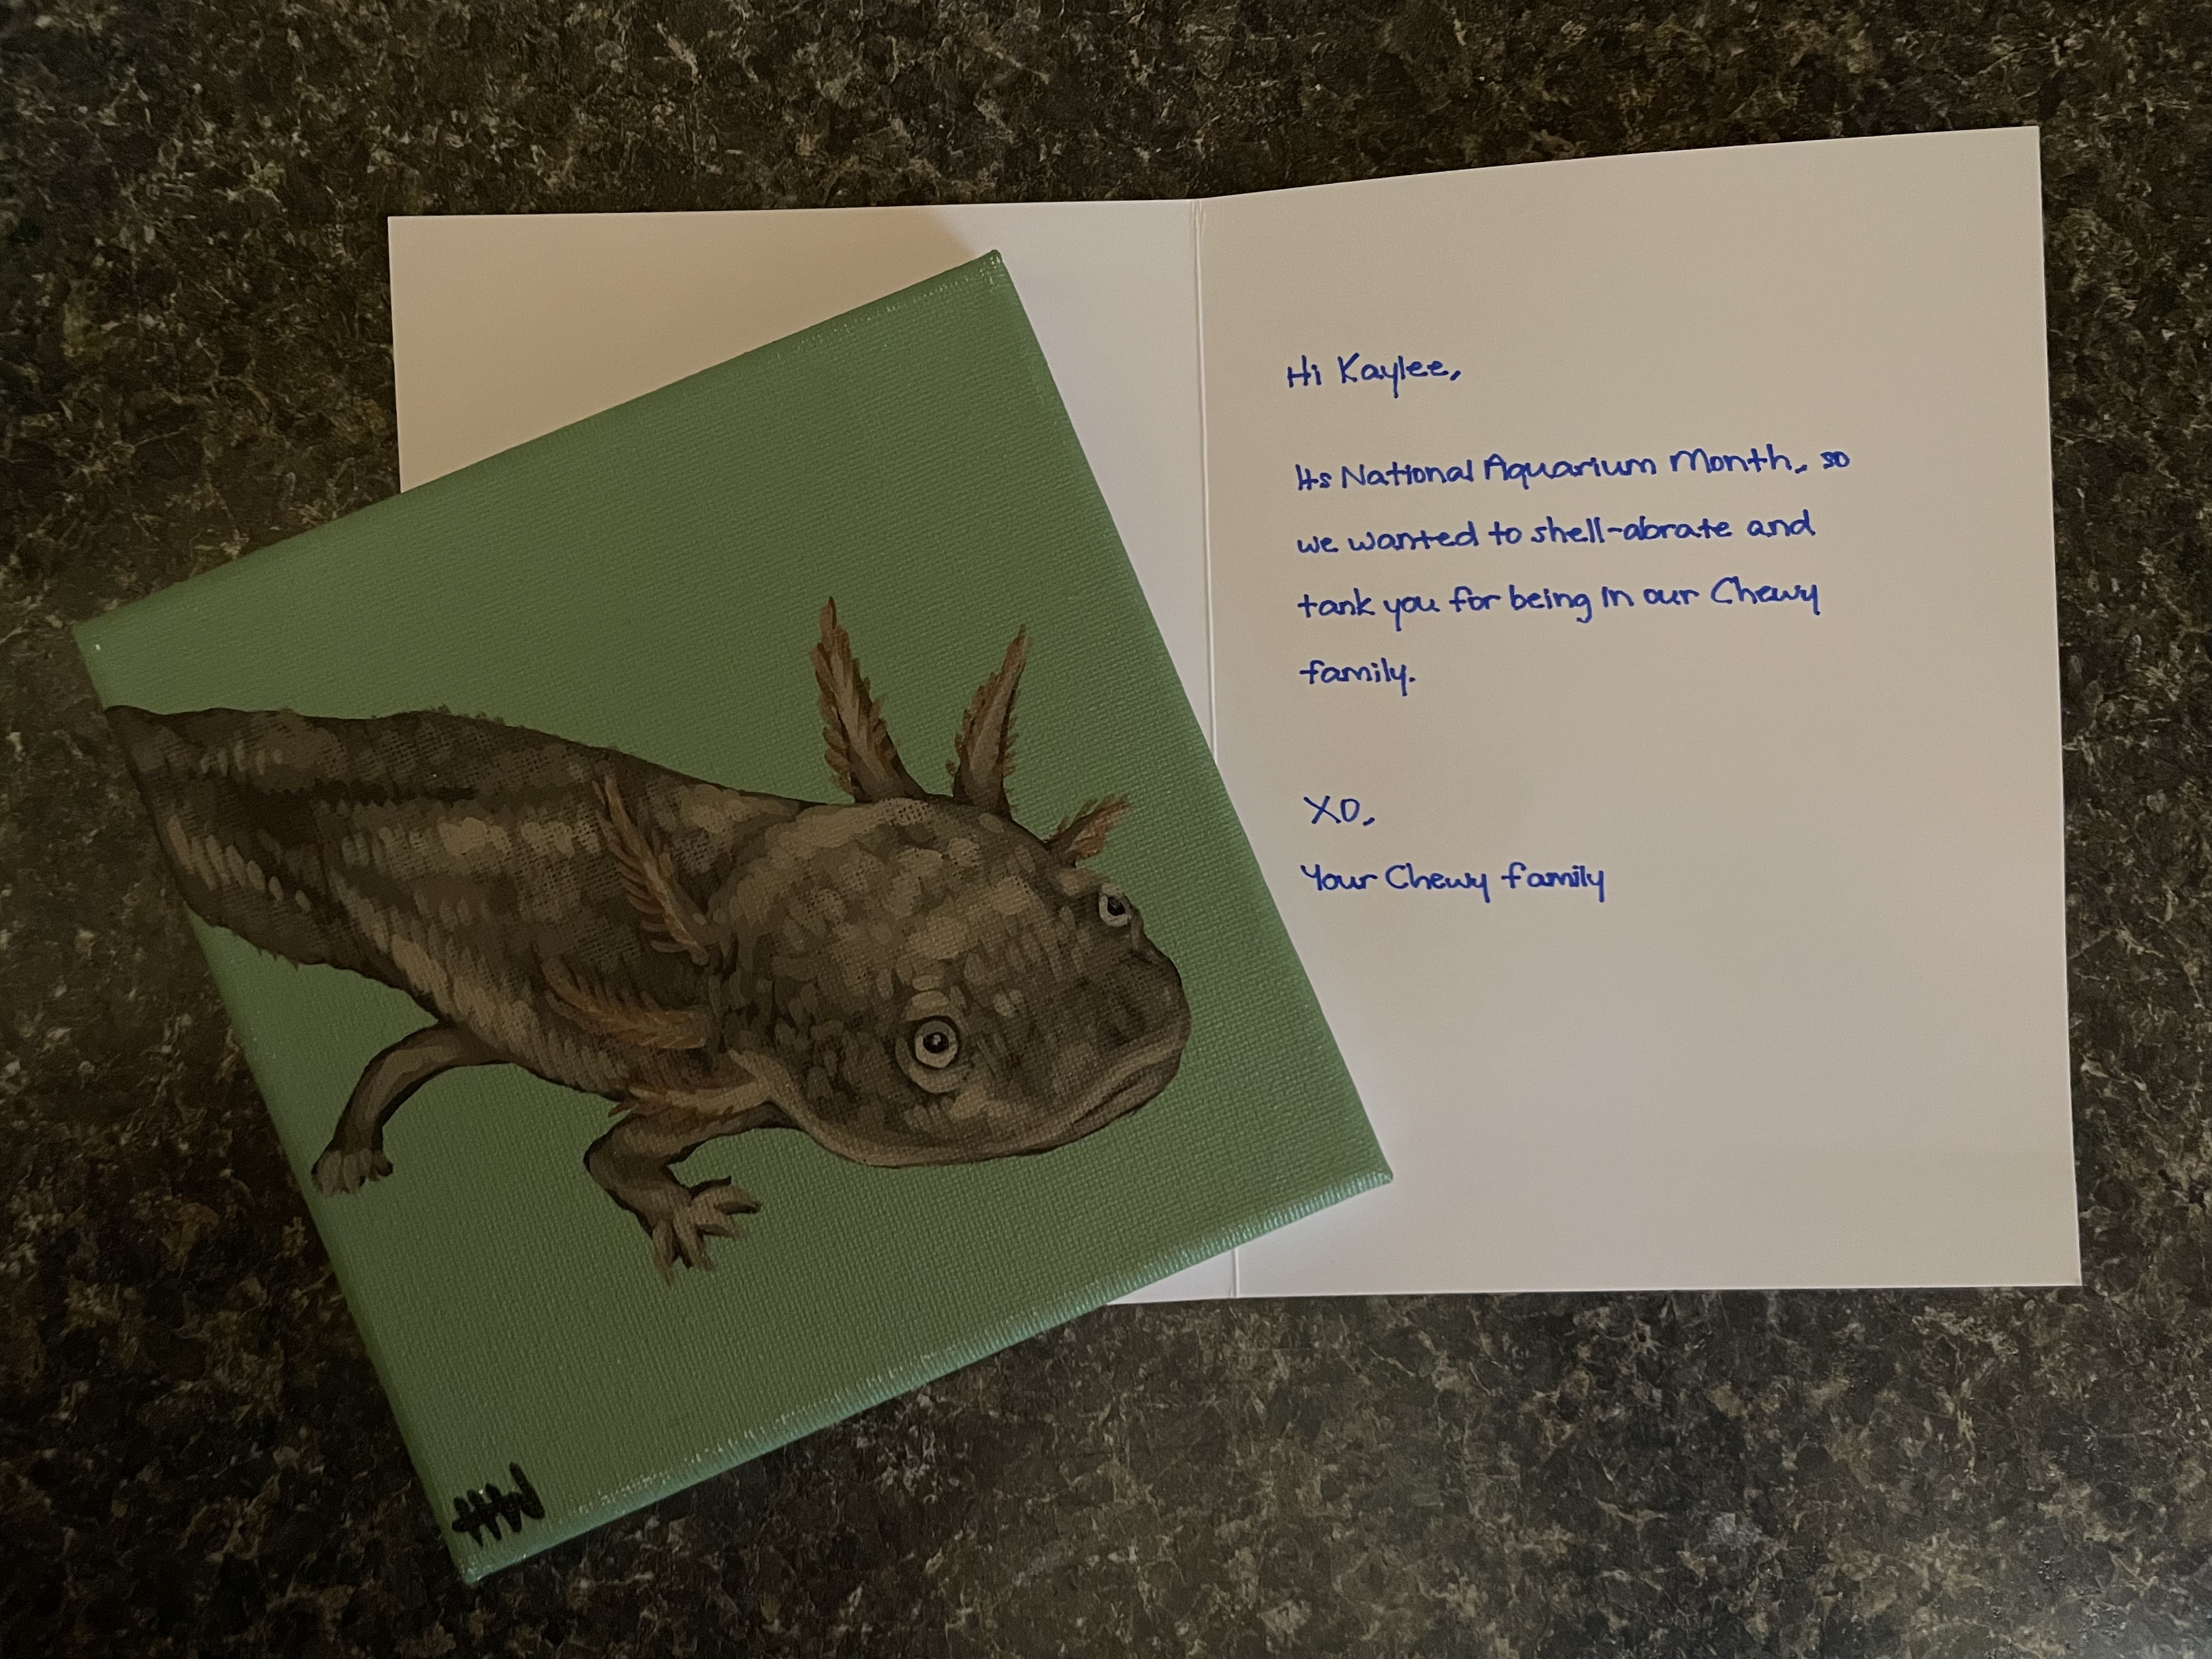 Hi Kaylee,
Its National Aquarium Month, so
we wanted to shell-abrate and
tank you for being in our Chewy
family.
XO,
Your Chewy family